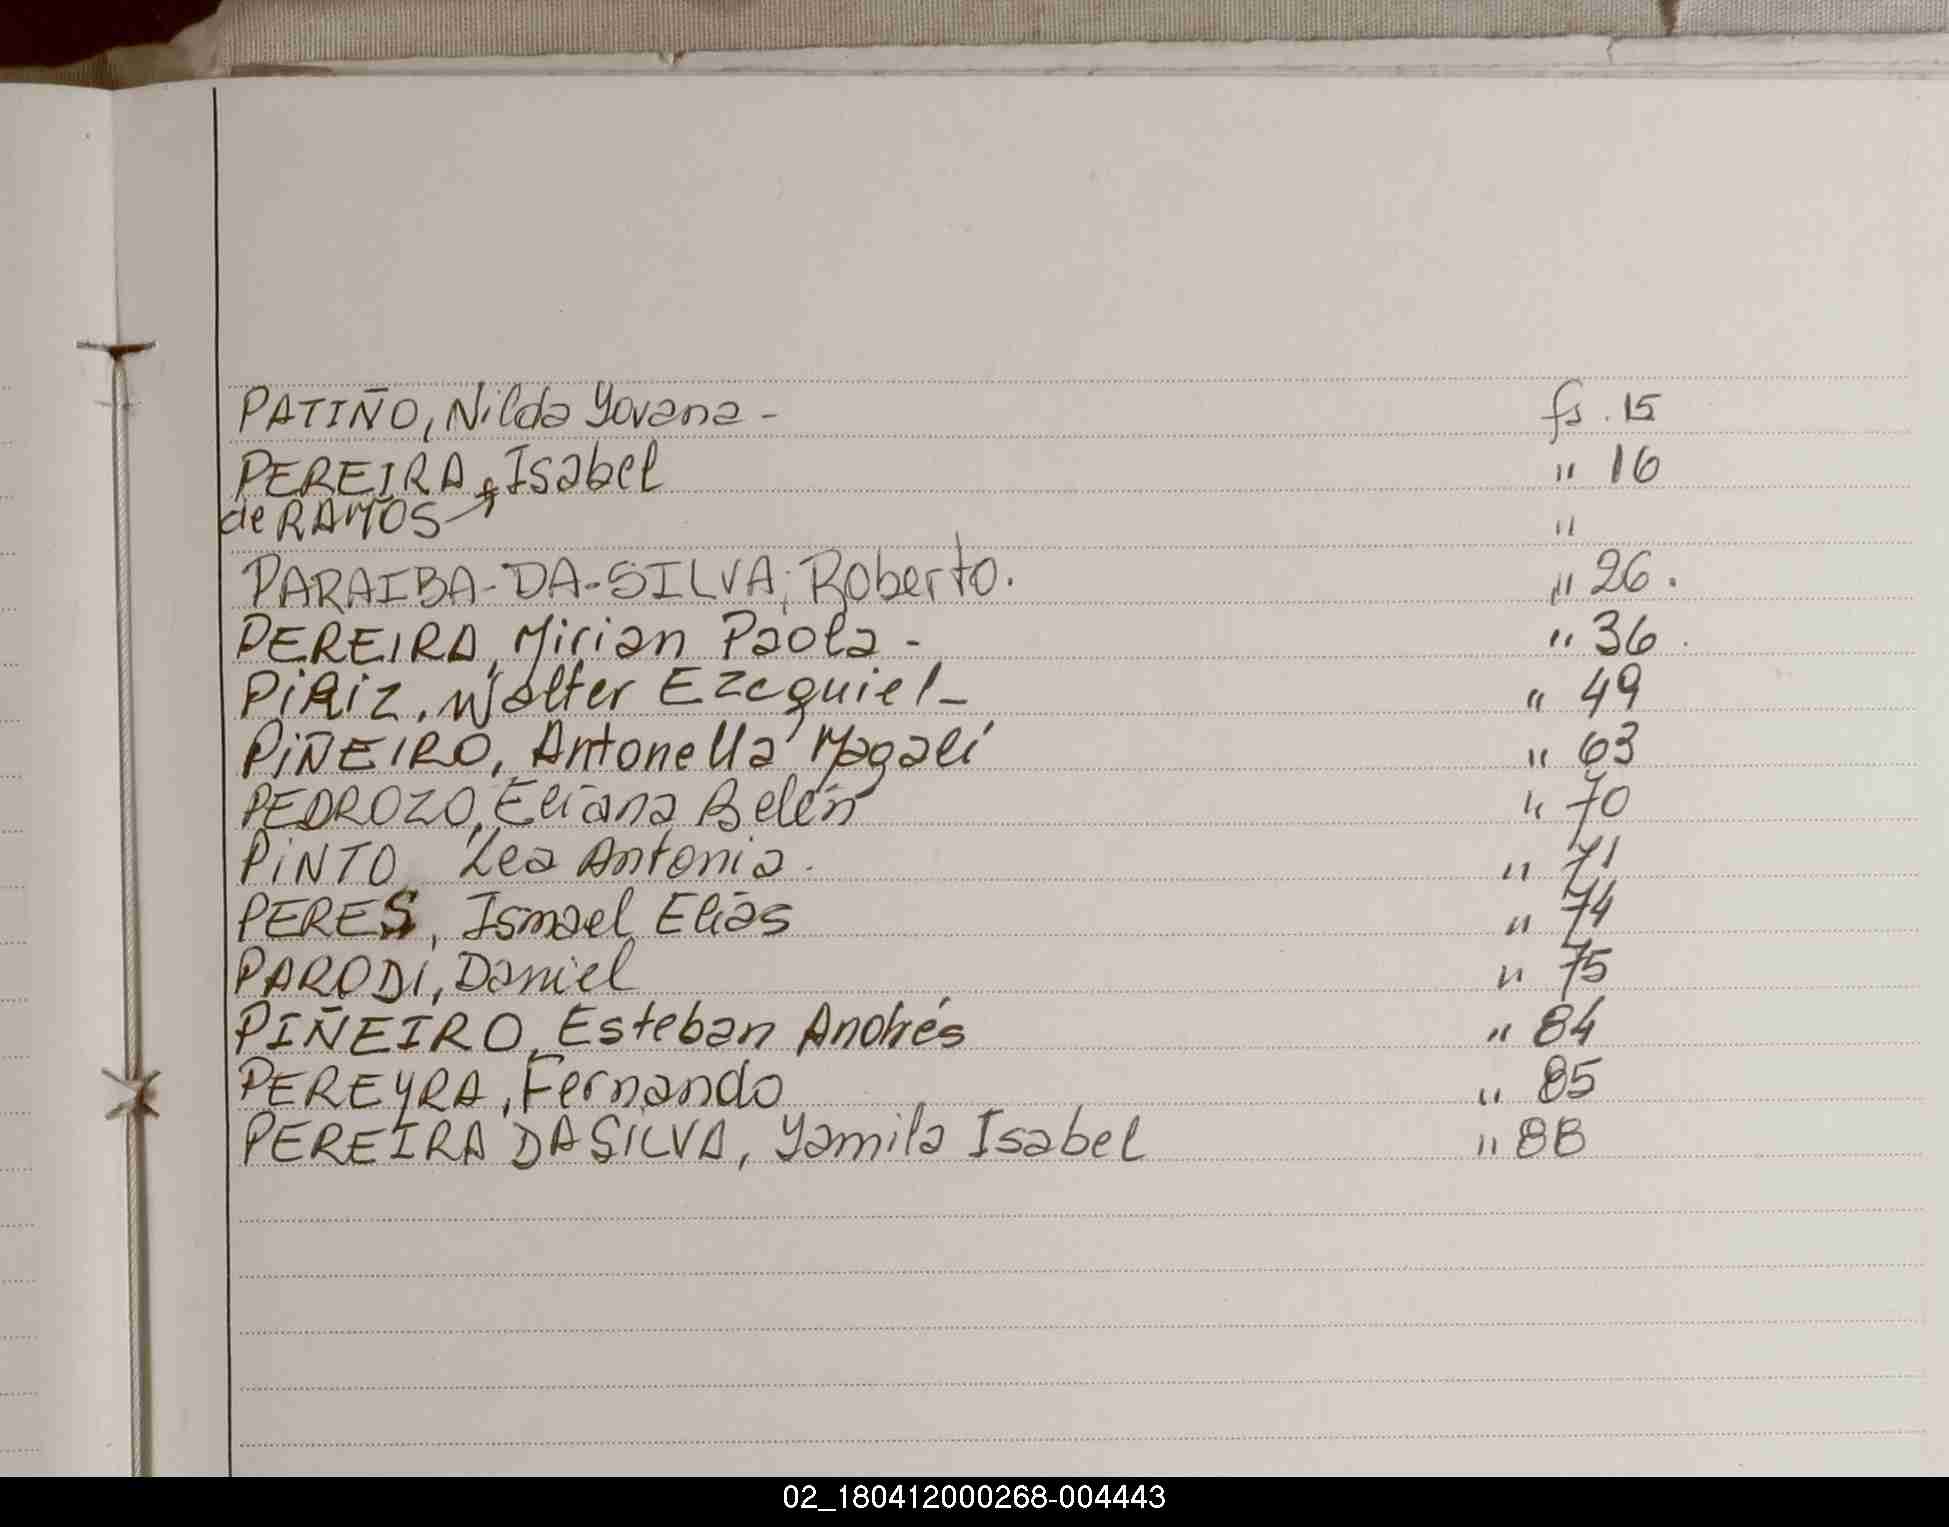 PATIÑO, Nilda Yovana - fs. 15
PEREIRA, Isabel " 16
de RAMOS "
PARAIBA-DA-SILVA, Roberto. " 26.
PEREIRA, Mirian Paola - " 36.
PiRiZ, Walter Ezequiel - " 49
PiÑEIRO, Antonella Magalí " 63
PEDROZO, Eliana Belén " 70
PiNTO Lea Antonia. " 71
PERES, Ismael Elías " 74
PARODI, Daniel " 75
PIÑEIRO, Esteban Andrés " 84
PEREYRA, Fernando " 85
PEREIRA DA SILVA, Yamila Isabel " 88
02_180412000268-004443